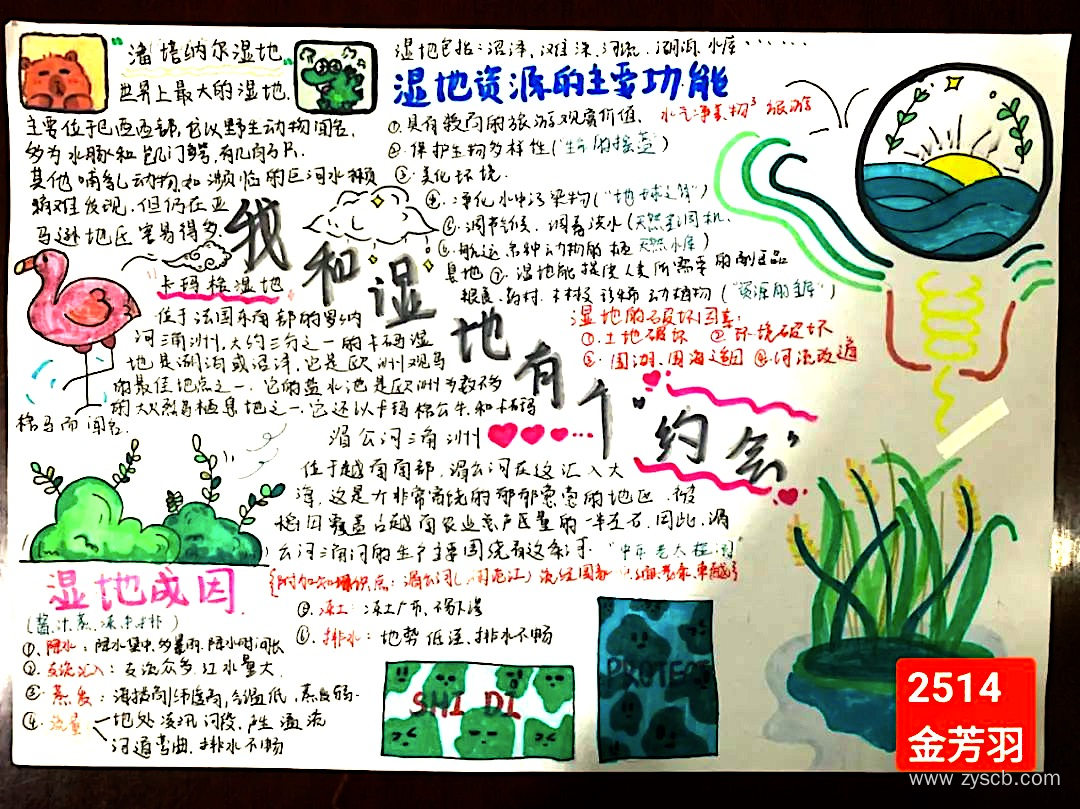 潘塔纳尔湿地
世界上最大的湿地.
主要位于巴西西部,它以野生动物闻名,
多为水豚和凯门鳄,有几百万只.
其他哺乳动物,如濒临的巨河水獭
稍难发现,但仍在亚
马逊地区容易得多.
卡玛格湿地
位于法国东南部的罗纳
河三角洲,大约三分之一的卡玛格湿
地是湖泊或沼泽,它是欧洲观鸟
的最佳地点之一.它的盐水池是欧洲少数不多
的大火烈鸟栖息地之一.它还以卡玛格公牛和卡玛
格马而闻名.
我和湿地有个"约会"
湄公河三角洲
位于越南南部,湄公河在这汇入大
海,这是片非常富饶的郁郁葱葱的地区.被
稻田覆盖占越南农业总产区量的一半左右,因此,湄
公河三角河的生产主要围绕着这条河.
湿地包括:沼泽、滩涂、河流、湖泊、水库······
湿地资源的主要功能
①.具有较高的旅游观赏价值.
②.保护生物多样性("生命的摇篮")
③.美化环境.
④.净化水中污染物("地球之肾")
⑤.调节气候、调蓄淡水(天然空调机、
天然水库)
⑥.航运.各种动物的栖
息地⑦.湿地能提供人类所需要的副产品
粮食、药材、木材及珍稀动植物("资源的宝库")
湿地的破坏因素:
①.土地破坏 ②环境破坏
③.围湖、围海造田 ④河流改道
湿地成因
①、降水:降水集中,多暴雨,降水时间长
②、支流汇入:支流众多,江水量大
③、蒸发:海拔高,纬度高,气温低,蒸发弱.
④.流量
地处凌汛河段,产生溢流
河道弯曲,排水不畅
⑤.冻土:冻土广布,不易下渗
⑥.排水:地势低洼,排水不畅
SHI DI
PROTECT
2514
金芳羽
www.zyscb.com